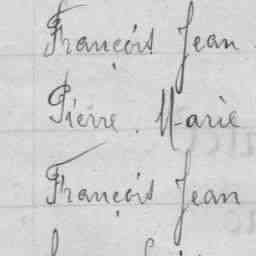 François Jean
Pierre. Marie
François Jean